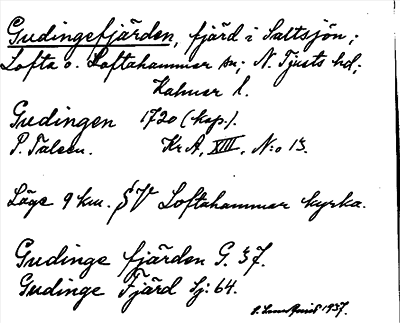 Gudingefjärden, fjärd i Saltsjön;
Lofta o. Loftahammar sn; N. Tjusts hd;
Kalmar l.
Gudingen 1720 (kop.).
P. Falsen. KrA, XIII, N:o 13.
Läge 9 km. SV Loftahammar kyrka.
Gudinge fjärden G. 37.
Gudinge Fjärd Sj: 64.
1937.